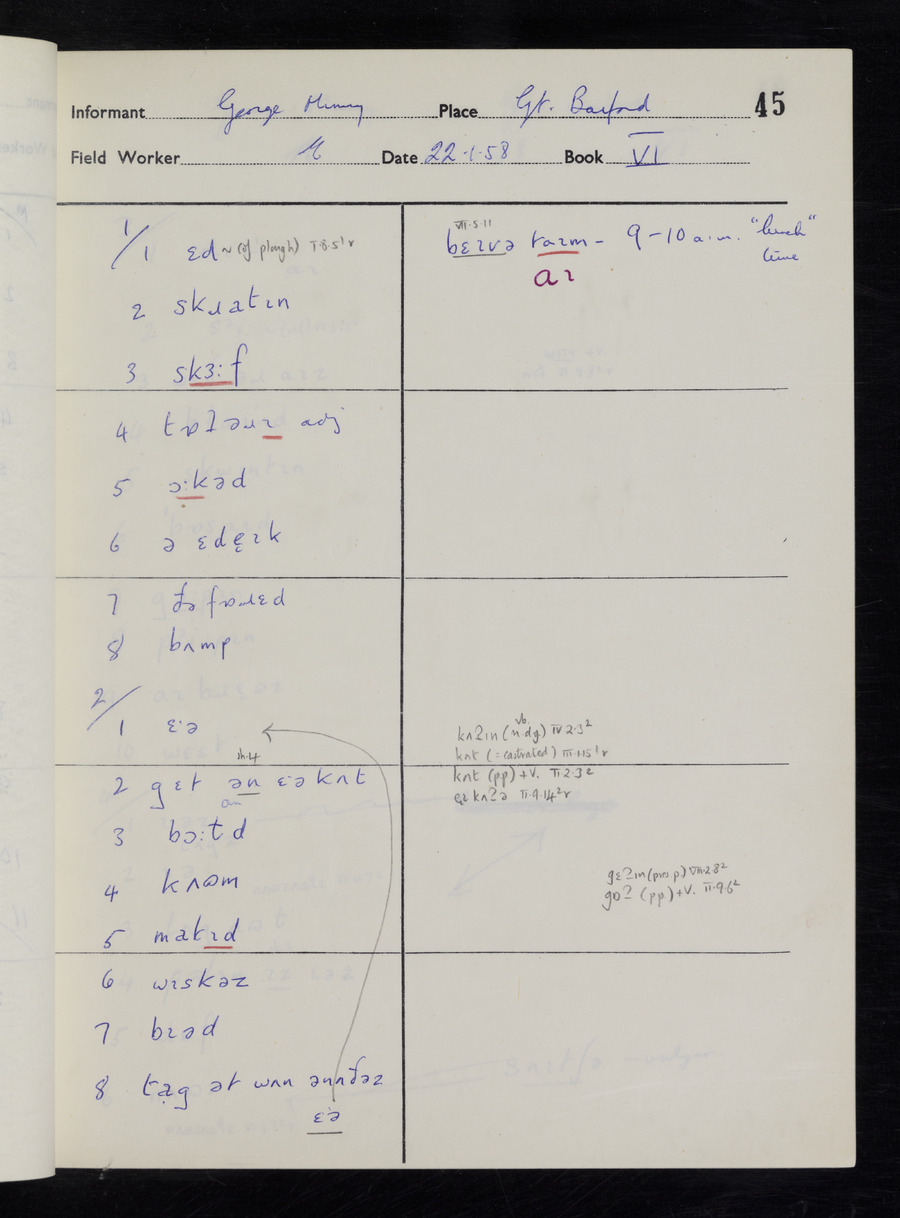 Informant George Place Gt. Barford 45
Field Worker Date 22.1.58 Book VI
1/1 ɛd ~ (of plough) I.8.5¹r
2 skɹatɪn
3 skɜ:f
4 adj
5 ɔ:kəd
6 ə ɛdɛ̞ɪk
7
8 bʌmp
2/1 ɛ:ə
2 gɛt ən ɛ:ə kʌt
sh.4
an
3 bɔ:td
4
5 matɪd
6 wɪskəz
7 bɪəd
8 ta̞g ət wʌn ənʌðəz
ɛ:ə
VII.5.11
bɛɪvə taɪm – 9–10 a.m. "lunch"
time
aɪ
vb.
kʌʔɪn (ndg) IV.2.3²
kʌt (= castrated) III.1.15¹r
kʌt (pp) + V. II.2.3²
kʌʔə II.9.14²r
gɛʔɪn (pres p.) VIII.2.8²
gɒʔ (pp.) + V. II.9.6²